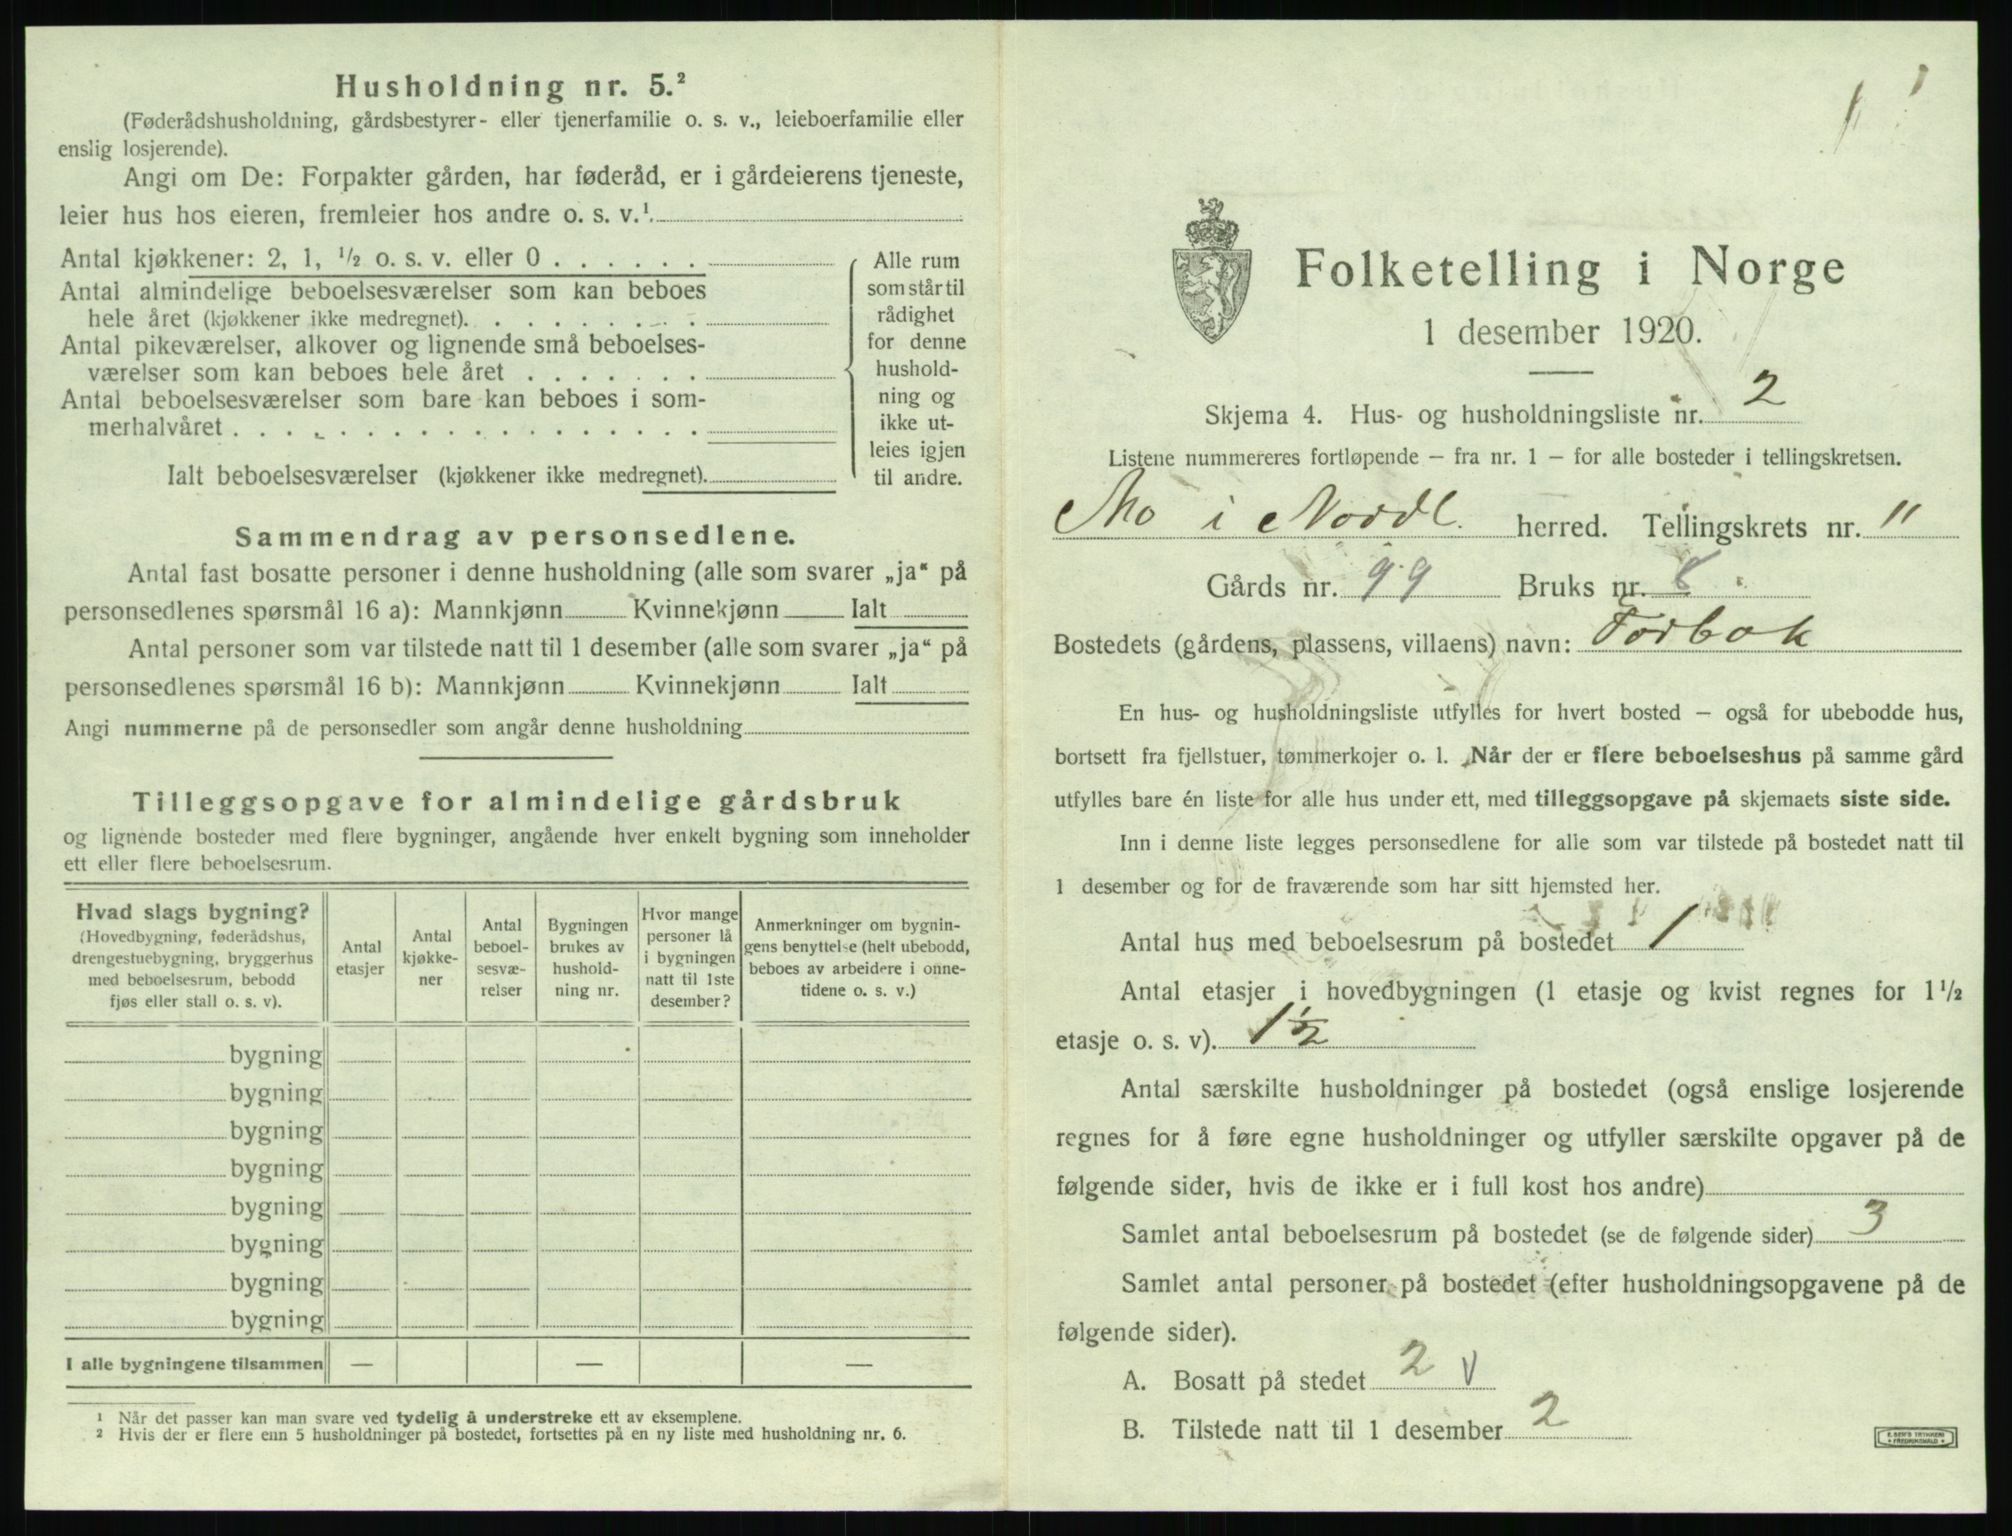 Husholdning nr. 5.²
(Føderådshusholdning, gårdsbestyrer- eller tjenerfamilie o. s. v., leieboerfamilie eller
enslig losjerende).
Angi om De: Forpakter gården, har føderåd, er i gårdeierens tjeneste,
leier hus hos eieren, fremleier hos andre o. s. v.¹.
Antal kjøkkener: 2, 1, ½ o. s. v. eller 0 . . . . . .
Antal almindelige beboelsesværelser som kan beboes
hele året (kjøkkener ikke medregnet). . . . . . . . .
Antal pikeværelser, alkover og lignende små beboelses-
værelser som kan beboes hele året . . . . . . .
Antal beboelsesværelser som bare kan beboes i som-
merhalvåret . . . . . . . . . . . . . . . . . .
Ialt beboelsesværelser (kjøkkener ikke medregnet).
Alle rum
som står til
rådighet
for denne
hushold-
ning og
ikke ut-
leies igjen
til andre.
Sammendrag av personsedlene.
Antal fast bosatte personer i denne husholdning (alle som svarer „ja“ på
personsedlenes spørsmål 16 a): Mannkjønn Kvinnekjønn Ialt
Antal personer som var tilstede natt til 1 desember (alle som svarer „ja“ på
personsedlenes spørsmål 16 b): Mannkjønn Kvinnekjønn Ialt
Angi nummerne på de personsedler som angår denne husholdning
Tilleggsopgave for almindelige gårdsbruk
og lignende bosteder med flere bygninger, angående hver enkelt bygning som inneholder
ett eller flere beboelsesrum.
Hvad slags bygning?
(Hovedbygning, føderådshus,
drengestuebygning, bryggerhus
med beboelsesrum, bebodd
fjøs eller stall o. s. v).
Antal
etasjer
Antal
kjøkke-
ner
Antal
beboel-
sesvæ-
relser
Bygningen
brukes av
hushold-
ning nr.
Hvor mange
personer lå
i bygningen
natt til 1ste
desember?
Anmerkninger om bygnin-
gens benyttelse (helt ubebodd,
beboes av arbeidere i onne-
tidene o. s. v.)
bygning
bygning
bygning
bygning
bygning
bygning
bygning
bygning
I alle bygningene tilsammen — — —
¹ Når det passer kan man svare ved tydelig å understreke ett av eksemplene.
² Hvis der er flere enn 5 husholdninger på bostedet, fortsettes på en ny liste med husholdning nr. 6.
Folketelling i Norge
1 desember 1920.
Skjema 4. Hus- og husholdningsliste nr. 2
Listene nummereres fortløpende – fra nr. 1 – for alle bosteder i tellingskretsen.
Mo i Nordl. herred. Tellingskrets nr. 11
Gårds nr. 99 Bruks nr. 8
Bostedets (gårdens, plassens, villaens) navn: Forbak
En hus- og husholdningsliste utfylles for hvert bosted – også for ubebodde hus,
bortsett fra fjellstuer, tømmerkojer o. l. Når der er flere beboelseshus på samme gård
utfylles bare én liste for alle hus under ett, med tilleggsopgave på skjemaets siste side.
Inn i denne liste legges personsedlene for alle som var tilstede på bostedet natt til
1 desember og for de fraværende som har sitt hjemsted her.
Antal hus med beboelsesrum på bostedet 1
Antal etasjer i hovedbygningen (1 etasje og kvist regnes for 1½
etasje o. s. v). 1½
Antal særskilte husholdninger på bostedet (også enslige losjerende
regnes for å føre egne husholdninger og utfyller særskilte opgaver på de
følgende sider, hvis de ikke er i full kost hos andre)
Samlet antal beboelsesrum på bostedet (se de følgende sider) 3
Samlet antal personer på bostedet (efter husholdningsopgavene på de
følgende sider).
A. Bosatt på stedet 2 V
B. Tilstede natt til 1 desember 2